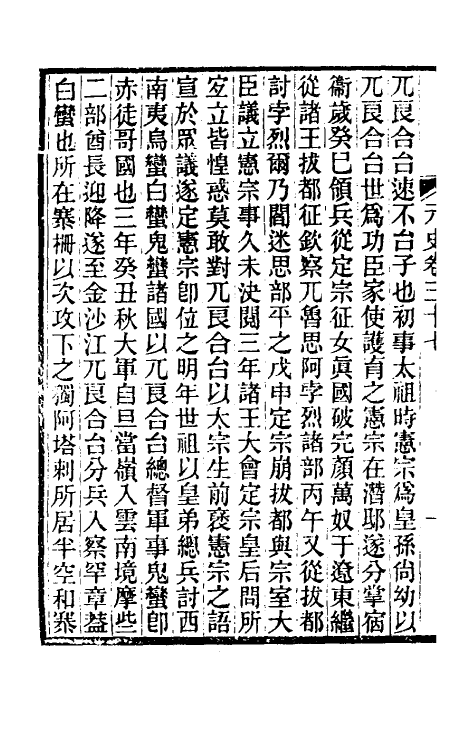 元史卷三十七
一
兀良合台速不台子也初事太祖時憲宗爲皇孫尙幼以
兀良合台世爲功臣家使護育之憲宗在潛邸遂分掌宿
衞歲癸巳領兵從定宗征女眞國破完顏萬奴于遼東繼
從諸王拔都征欽察兀魯思阿孛烈諸部丙午又從拔都
討孛烈爾乃閻迷思部平之戊申定宗崩拔都與宗室大
臣議立憲宗事久未決閱三年諸王大會定宗皇后問所
宜立皆惶惑莫敢對兀良合台以太宗生前襃憲宗之語
宣於眾議遂定憲宗卽位之明年世祖以皇弟總兵討西
南夷烏蠻白蠻鬼蠻諸國以兀良合台總督軍事鬼蠻卽
赤徒哥國也三年癸丑秋大軍自旦當嶺入雲南境摩些
二部酋長迎降遂至金沙江兀良合台分兵入察罕章葢
白蠻也所在寨柵以次攻下之獨阿塔剌所居半空和寨